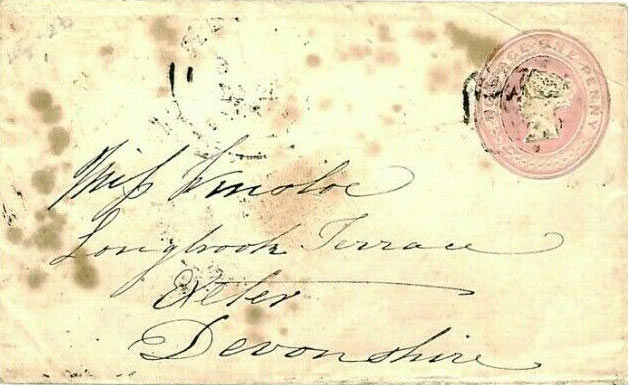 ONE PENNY
Miss
Longbrook Terrace
Exeter
Devonshire